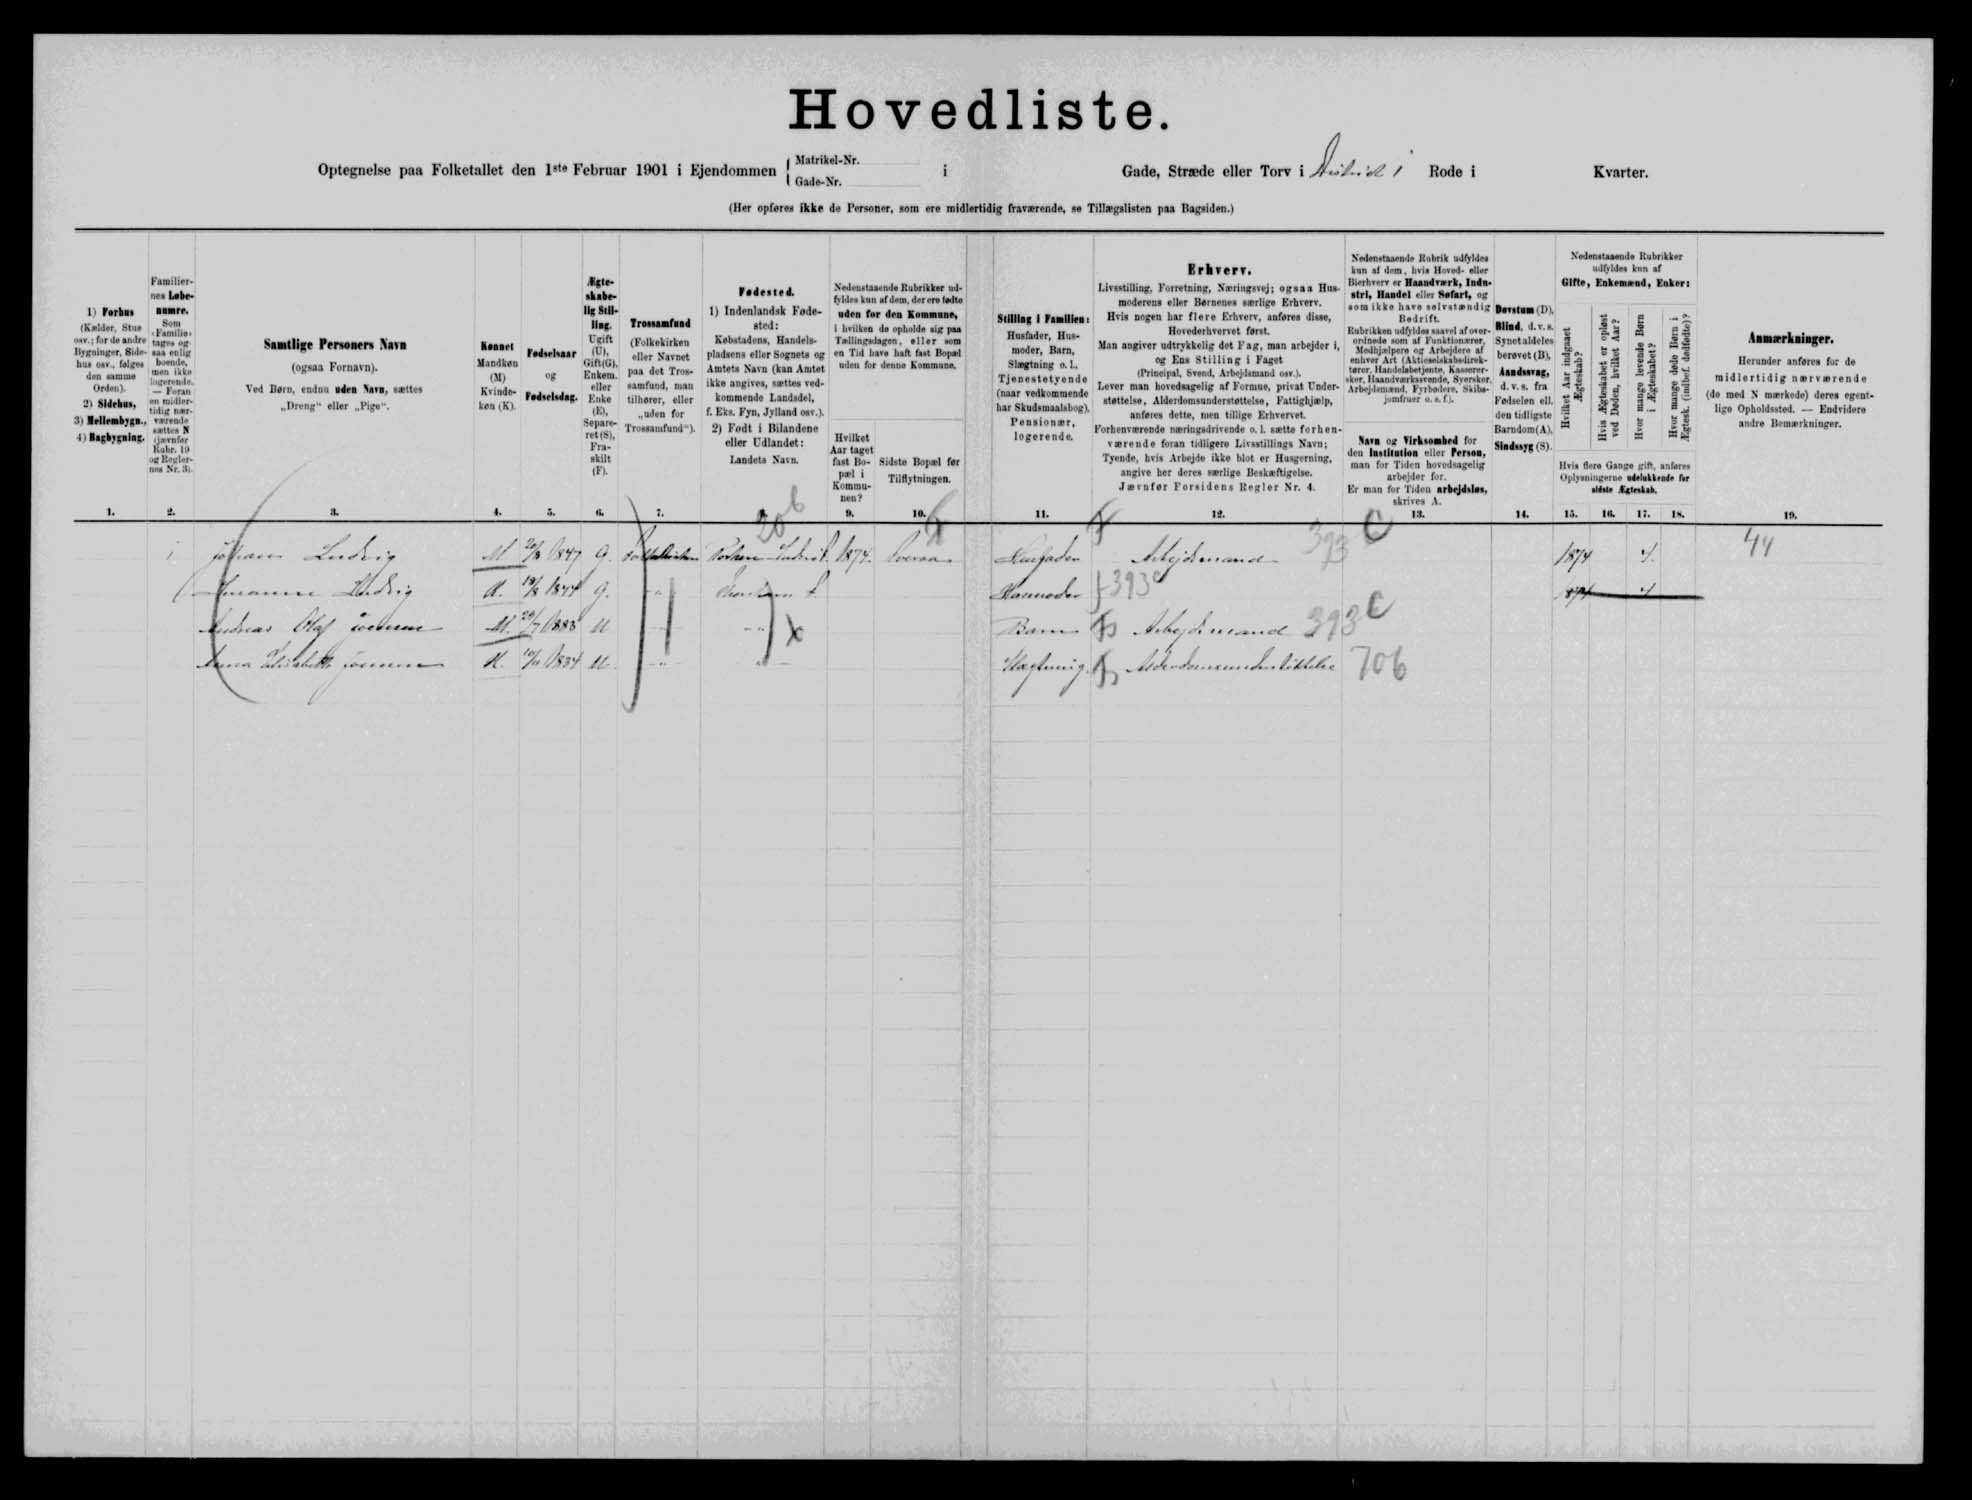 Hovedliste.
Optegnelse paa Folketallet den 1ste Februar 1901 i Ejendommen { Matrikel-Nr. Gade-Nr. i Gade, Stræde eller Torv i Distrikt 1 Rode i Kvarter.
(Her opføres ikke de Personer, som ere midlertidig fraværende, se Tillægslisten paa Bagsiden.)
1) Forhus
(Kælder, Stue
osv.; for de andre
Bygninger, Side-
hus osv., følges
den samme
Orden).
2) Sidehus,
3) Mellembygn.,
4) Bagbygning.
Familier-
nes Løbe-
numre.
Som
›Familie›
tages og-
saa enlig
boende,
men ikke
logerende.
— Foran
en midler-
tidig nær-
værende
sættes N
(jævnfør
Rubr. 19
og Regler-
nes Nr. 3).
Samtlige Personers Navn
(ogsaa Fornavn).
Ved Børn, endnu uden Navn, sættes
„Dreng“ eller „Pige“.
Kønnet
Mandkøn
(M)
Kvinde-
køn (K).
Fødselsaar
og
Fødselsdag.
Ægte-
skabe-
lig Stil-
ling.
Ugift
(U),
Gift(G),
Enkem.
eller
Enke
(E),
Separe-
ret (S),
Fra-
skilt
(F).
Trossamfund
(Folkekirken
eller Navnet
paa det Tros-
samfund, man
tilhører, eller
„uden for
Trossamfund“).
Fødested.
1) Indenlandsk Føde-
sted:
Købstadens, Handels-
pladsens eller Sognets og
Amtets Navn (kan Amtet
ikke angives, sættes ved-
kommende Landsdel,
f. Eks. Fyn, Jylland osv.).
2) Født i Bilandene
eller Udlandet:
Landets Navn.
Nedenstaaende Rubrikker ud-
fyldes kun af dem, der ere fødte
uden for den Kommune,
i hvilken de opholde sig paa
Tællingsdagen, eller som
en Tid have haft fast Bopæl
uden for denne Kommune.
Hvilket
Aar taget
fast Bo-
pæl i
Kommu-
nen?
Sidste Bopæl før
Tilflytningen.
Stilling i Familien:
Husfader, Hus-
moder, Barn,
Slægtning o. l.,
Tjenestetyende
(naar vedkommende
har Skudsmaalsbog),
Pensionær,
logerende.
Erhverv.
Livsstilling, Forretning, Næringsvej; ogsaa Hus-
moderens eller Børnenes særlige Erhverv.
Hvis nogen har flere Erhverv, anføres disse,
Hovederhvervet først.
Man angiver udtrykkelig det Fag, man arbejder i,
og Ens Stilling i Faget
(Principal, Svend, Arbejdsmand osv.).
Lever man hovedsagelig af Formue, privat Under-
støttelse, Alderdomsunderstøttelse, Fattighjælp,
anføres dette, men tillige Erhvervet.
Forhenværende næringsdrivende o. l. sætte forhen-
værende foran tidligere Livsstillings Navn;
Tyende, hvis Arbejde ikke blot er Husgerning,
angive her deres særlige Beskæftigelse.
Jævnfør Forsidens Regler Nr. 4.
Nedenstaaende Rubrik udfyldes
kun af dem, hvis Hoved- eller
Bierhverv er Haandværk, Indu-
stri, Handel eller Søfart, og
som ikke have selvstændig
Bedrift.
Rubrikken udfyldes saavel af over-
ordnede som af Funktionærer,
Medhjælpere og Arbejdere af
enhver Art (Aktieselskabsdirek-
tører, Handelsbetjente, Kasserer-
sker, Haandværkssvende, Syersker,
Arbejdsmænd, Fyrbødere, Skibs-
jomfruer o. s. f.).
Navn og Virksomhed for
den Institution eller Person,
man for Tiden hovedsagelig
arbejder for.
Er man for Tiden arbejdsløs,
skrives A.
Døvstum (D),
Blind, d. v. s.
Synet aldeles
berøvet (B),
Aandssvag,
d. v. s. fra
Fødselen ell.
den tidligste
Barndom(A),
Sindssyg (S).
Nedenstaaende Rubrikker
udfyldes kun af
Gifte, Enkemænd, Enker:
Hvilket Aar indgaaet Ægteskab?
Hvis Ægteskabet er opløst ved Døden, hvilket Aar?
Hvor mange levende Børn i Ægteskabet?
Hvor mange døde Børn i Ægtesk. (indbef. dødfødte)?
Hvis flere Gange gift, anføres
Oplysningerne udelukkende for
sidste Ægteskab.
Anmærkninger.
Herunder anføres for de
midlertidig nærværende
(de med N mærkede) deres egent-
lige Opholdssted. — Endvidere
andre Bemærkninger.
1. 2. 3. 4. 5. 6. 7. 8. 9. 10. 11. 12. 13. 14. 15. 16. 17. 18. 19.
20b
1 Johan Ludvig M 20/8 1847 G. Folkekirken 1874. Husfader Arbejdsmand 393 C 1874 4. 44
Ludvig K. 18/8 1844 G. Husmoder 393c 1874 4
Andreas Olaf Jensen M. 29/7 1883 U Barn Arbejdsmand 393 C
Anna Elisabeth Jensen K. 10/11 1834 U. Slægtning Alderdomsunderstøttelse 706